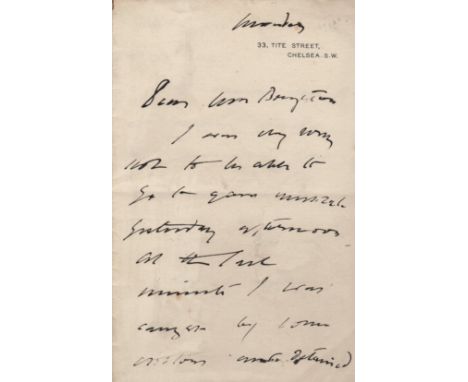 Monday
33, TITE STREET,
CHELSEA. S.W.
Dear Mrs
I was very sorry
not to be able to
go to your musicale
yesterday afternoon
At the last
minute I was
caught by some
visitors and detained